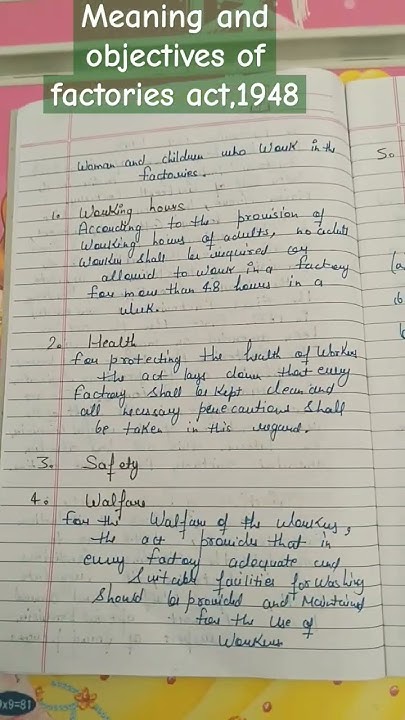 Meaning and
objectives of
factories act,1948
Woman and children who Work in the
factories.
So
1. Working hours
According to the provision of
Working hours of adults, no adult
Worker shall be required
allowed to work in a factory
for more than 48 hours in a
Week.
2. Health
for protecting the health of Workers
the act lays down that every
Factory shall be kept clean and
all necessary precautions shall
be taken in this regard.
3. Safety
4. Walfare
for the Walfare of the workers,
the act provides that in
every factory adequate and
Suitable facilities for Washing
Should be provided and Maintained
for the Use of
Workers
9x9=81